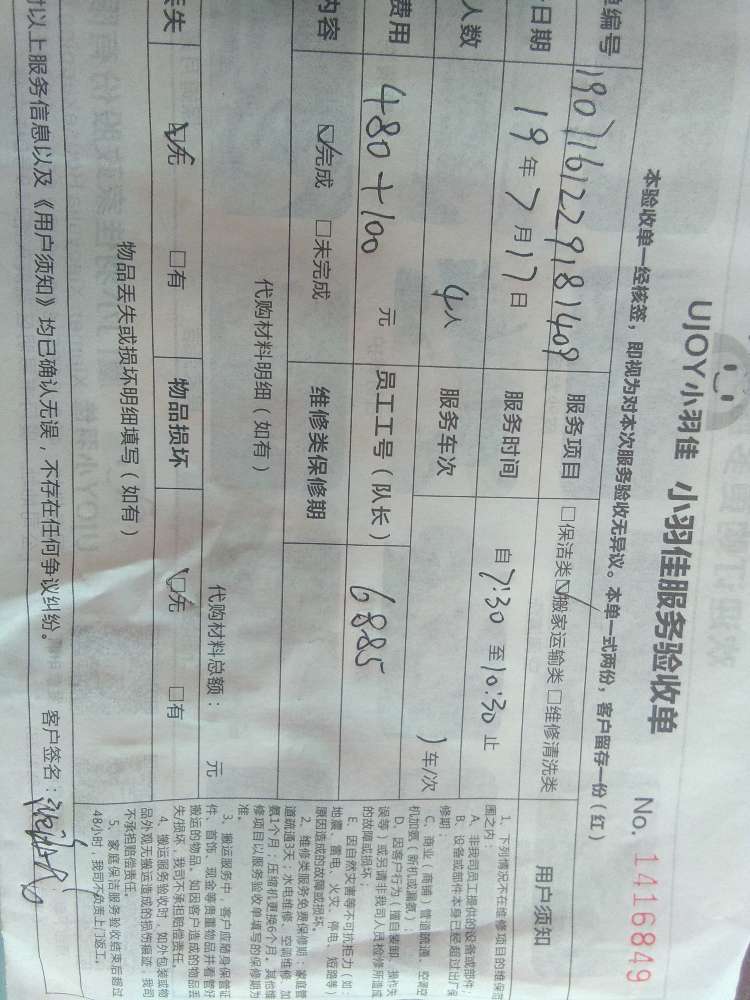 UJOY小羽佳 小羽佳服务验收单 No. 1416849
本验收单一经核签，即视为对本次服务验收无异议。本单一式两份，客户留存一份（红）
单编号 190716122918 1409 服务项目 □保洁类☑搬家运输类□维修清洗类
日期 19年7月17日 服务时间 自7:30至10:30止
人数 4人 服务车次 1车/次
费用 480+100 元 员工工号（队长） 6885
内容 ☑完成 □未完成 维修类保修期
代购材料明细（如有） 代购材料总额： 元
丢失 ☑无 □有 物品损坏 ☑无 □有
物品丢失或损坏明细填写（如有）
对以上服务信息以及《用户须知》均已确认无误，不存在任何争议纠纷。 客户签名：
用户须知
1、下列情况不在维修项目的维保范
围之内：
A、非我司员工提供的设备或部件；
B、设备或部件本身已经超过出厂保
修期；
C、商业（商铺）管道疏通、空调空
机加氨（新机或漏氨）；
D、因客户行为（擅自装卸、操作失
误等）或另请非我司人员检修所造成
的故障或损坏；
E、因自然灾害等不可抗拒力（如：
地震、雷电、火灾、停电、短路等）
原因造成的故障或损坏。
2、维修类服务免费保修期：家庭管
道疏通3天；水电维修、空调维修、加
氨1个月；压缩机更换6个月。其他维
修项目以服务验收单填写的保修期为
准。
3、搬运服务中，客户应随身保管证
件、首饰、现金等贵重物品并看管好
搬运的物品。如因客户造成的物品丢
失/损坏，我司不承担赔偿责任。
4、搬运服务验收时，如外包装或物
品外观无搬运造成的损伤痕迹，我司
不承担赔偿责任。
5、家庭保洁服务验收结束后超过
48小时，我司不负责上门返工。